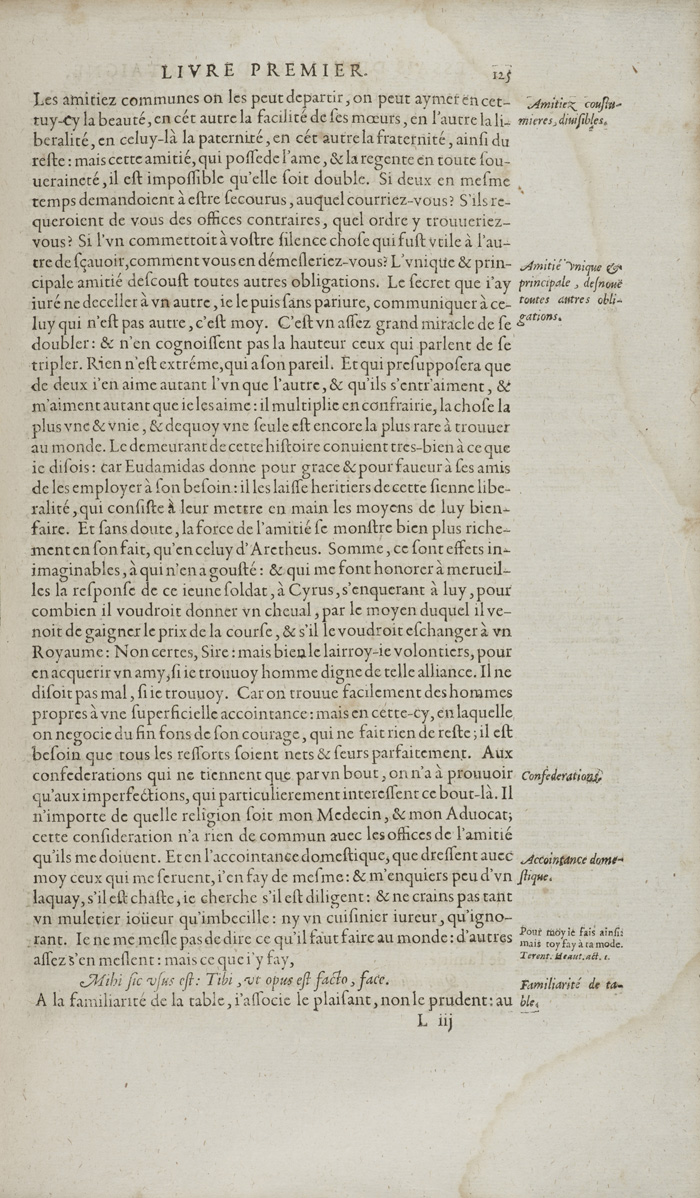 LIVRE PREMIER. 125
Les amitiez communes on les peut departir, on peut aymer en cet-
tuy-cy la beauté, en cét autre la facilité de ſes mœurs, en l'autre la li-
beralité, en celuy-là la paternité, en cét autre la fraternité, ainſi du
reſte: mais cette amitié, qui poſſede l'ame, & la regente en toute ſou-
ueraineté, il eſt impoſſible qu'elle ſoit double. Si deux en meſme
temps demandoient à eſtre ſecourus, auquel courriez-vous? S'ils re-
queroient de vous des offices contraires, quel ordre y trouueriez-
vous? Si l'vn commettoit à voſtre ſilence choſe qui fuſt vtile à l'au-
tre de ſçauoir, comment vous en démeſleriez-vous? L'vnique & prin-
cipale amitié deſcouſt toutes autres obligations. Le ſecret que i'ay
iuré ne deceller à vn autre, ie le puis ſans pariure, communiquer à ce-
luy qui n'eſt pas autre, c'eſt moy. C'eſt vn aſſez grand miracle de ſe
doubler: & n'en cognoiſſent pas la hauteur ceux qui parlent de ſe
tripler. Rien n'eſt extréme, qui a ſon pareil. Et qui preſuppoſera que
de deux i'en aime autant l'vn que l'autre, & qu'ils s'entr'aiment, &
m'aiment autant que ie les aime: il multiplie en confrairie, la choſe la
plus vne & vnie, & dequoy vne ſeule eſt encore la plus rare à trouuer
au monde. Le demeurant de cette hiſtoire conuient tres-bien à ce que
ie diſois: car Eudamidas donne pour grace & pour faueur à ſes amis
de les employer à ſon beſoin: il les laiſſe heritiers de cette ſienne libe-
ralité, qui conſiſte à leur mettre en main les moyens de luy bien-
faire. Et ſans doute, la force de l'amitié ſe monſtre bien plus riche-
ment en ſon fait, qu'en celuy d'Aretheus. Somme, ce ſont effets in-
imaginables, à qui n'en a gouſté: & qui me font honorer à merueil-
les la reſponſe de ce ieune ſoldat, à Cyrus, s'enquerant à luy, pour
combien il voudroit donner vn cheual, par le moyen duquel il ve-
noit de gaigner le prix de la courſe, & s'il le voudroit eſchanger à vn
Royaume: Non certes, Sire: mais bien le lairroy-ie volontiers, pour
en acquerir vn amy, ſi ie trouuoy homme digne de telle alliance. Il ne
diſoit pas mal, ſi ie trouuoy. Car on trouue facilement des hommes
propres à vne ſuperficielle accointance: mais en cette-cy, en laquelle
on negocie du fin fons de ſon courage, qui ne fait rien de reſte; il eſt
beſoin que tous les reſſorts ſoient nets & ſeurs parfaitement. Aux
confederations qui ne tiennent que par vn bout, on n'a à prouuoir
qu'aux imperfections, qui particulierement intereſſent ce bout-là. Il
n'importe de quelle religion ſoit mon Medecin, & mon Aduocat;
cette conſideration n'a rien de commun auec les offices de l'amitié
qu'ils me doiuent. Et en l'accointance domeſtique, que dreſſent auec
moy ceux qui me ſeruent, i'en fay de meſme: & m'enquiers peu d'vn
laquay, s'il eſt chaſte, ie cherche s'il eſt diligent: & ne crains pas tant
vn muletier ioüeur qu'imbecille: ny vn cuiſinier iureur, qu'igno-
rant. Ie ne me meſle pas de dire ce qu'il faut faire au monde: d'autres
aſſez s'en meſlent: mais ce que i'y fay,
Mihi ſic vſus eſt: Tibi, vt opus eſt facto, face.
A la familiarité de la table, i'aſſocie le plaiſant, non le prudent: au
L iij
Amitiez couſtu-
mieres, diuiſibles.
Amitié vnique &
principale, deſnouë
toutes autres obli-
gations.
Confederations.
Accointance dome-
ſtique.
Pour moy ie fais ainſi:
mais toy fay à ta mode.
Terent. Heaut. act. 1.
Familiarité de ta-
ble.